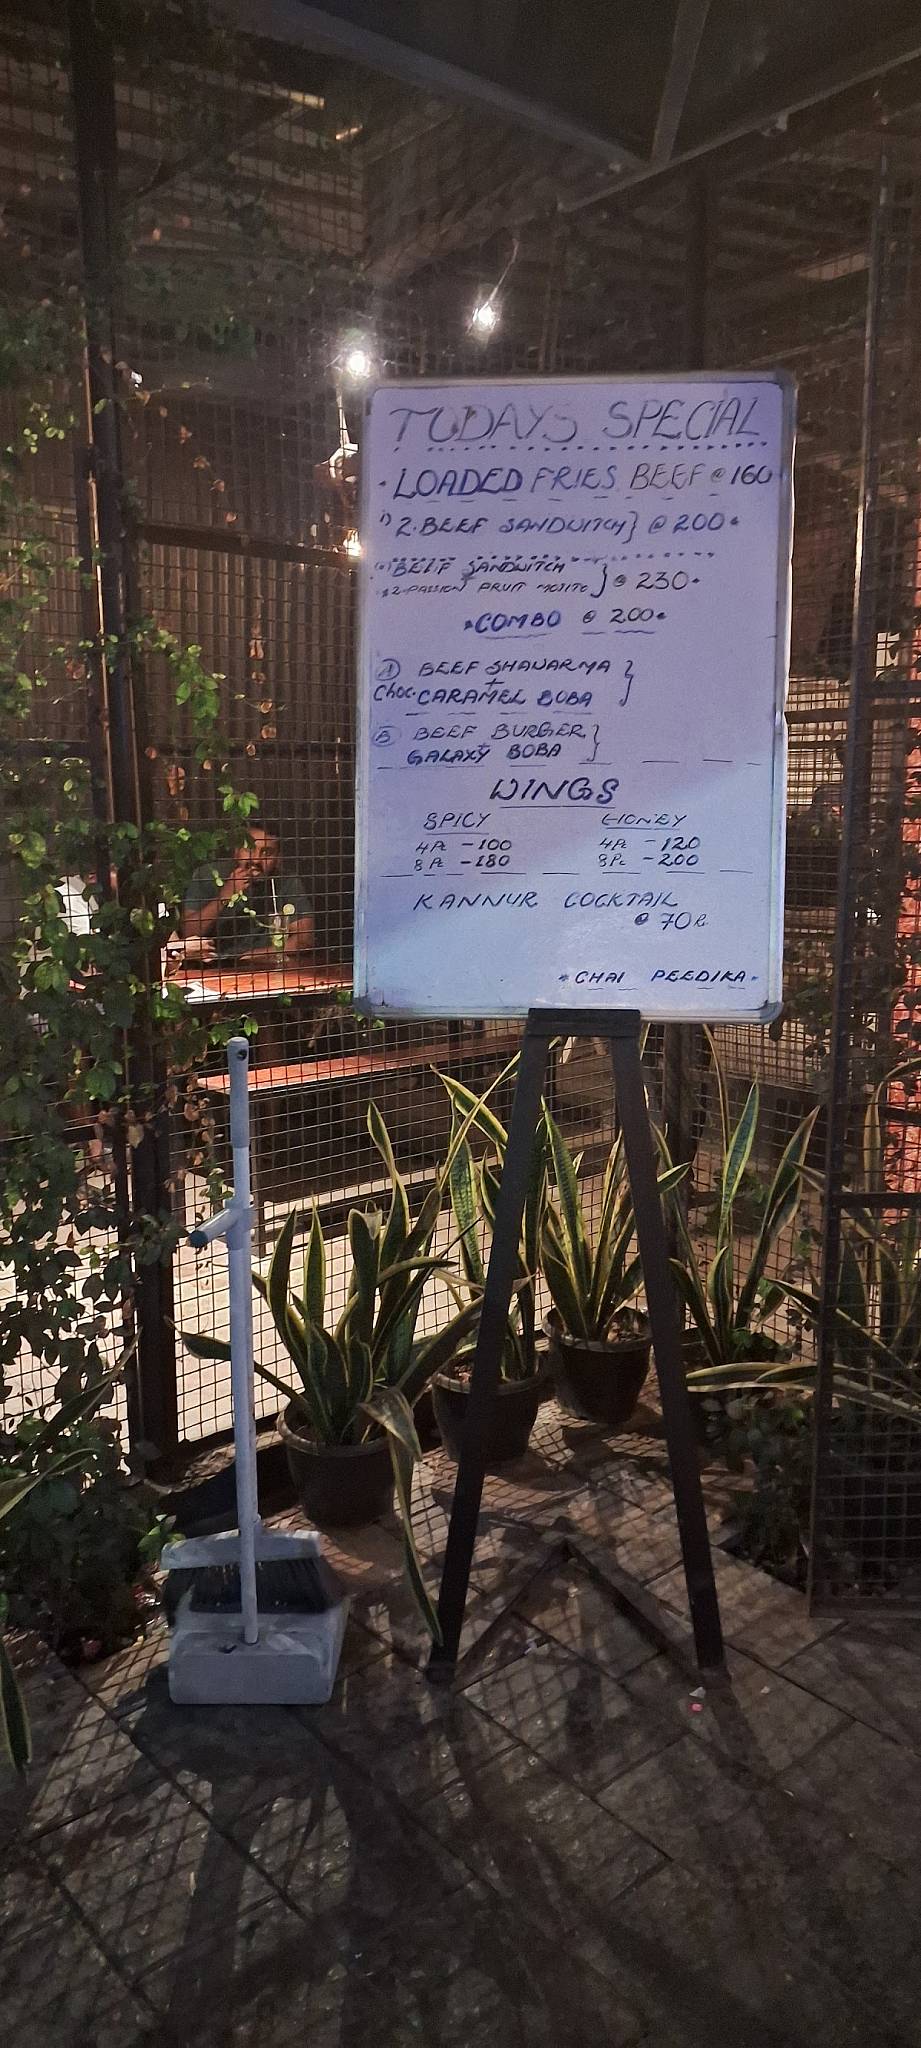 TODAYS SPECIAL
• LOADED FRIES BEEF @ 160
1) 2. BEEF SANDWITCH } @ 200 •
BEEF SANDWITCH
2 PASSION FRUIT MOJITO } @ 230 •
• COMBO @ 200 •
A BEEF SHAWARMA
+
Choc. CARAMEL BOBA }
B BEEF BURGER
+
GALAXY BOBA }
WINGS
SPICY HONEY
4 Pc - 100 4 Pc - 120
8 Pc - 180 8 Pc - 200
KANNUR COCKTAIL
@ 70 Rs
• CHAI PEEDIKA •